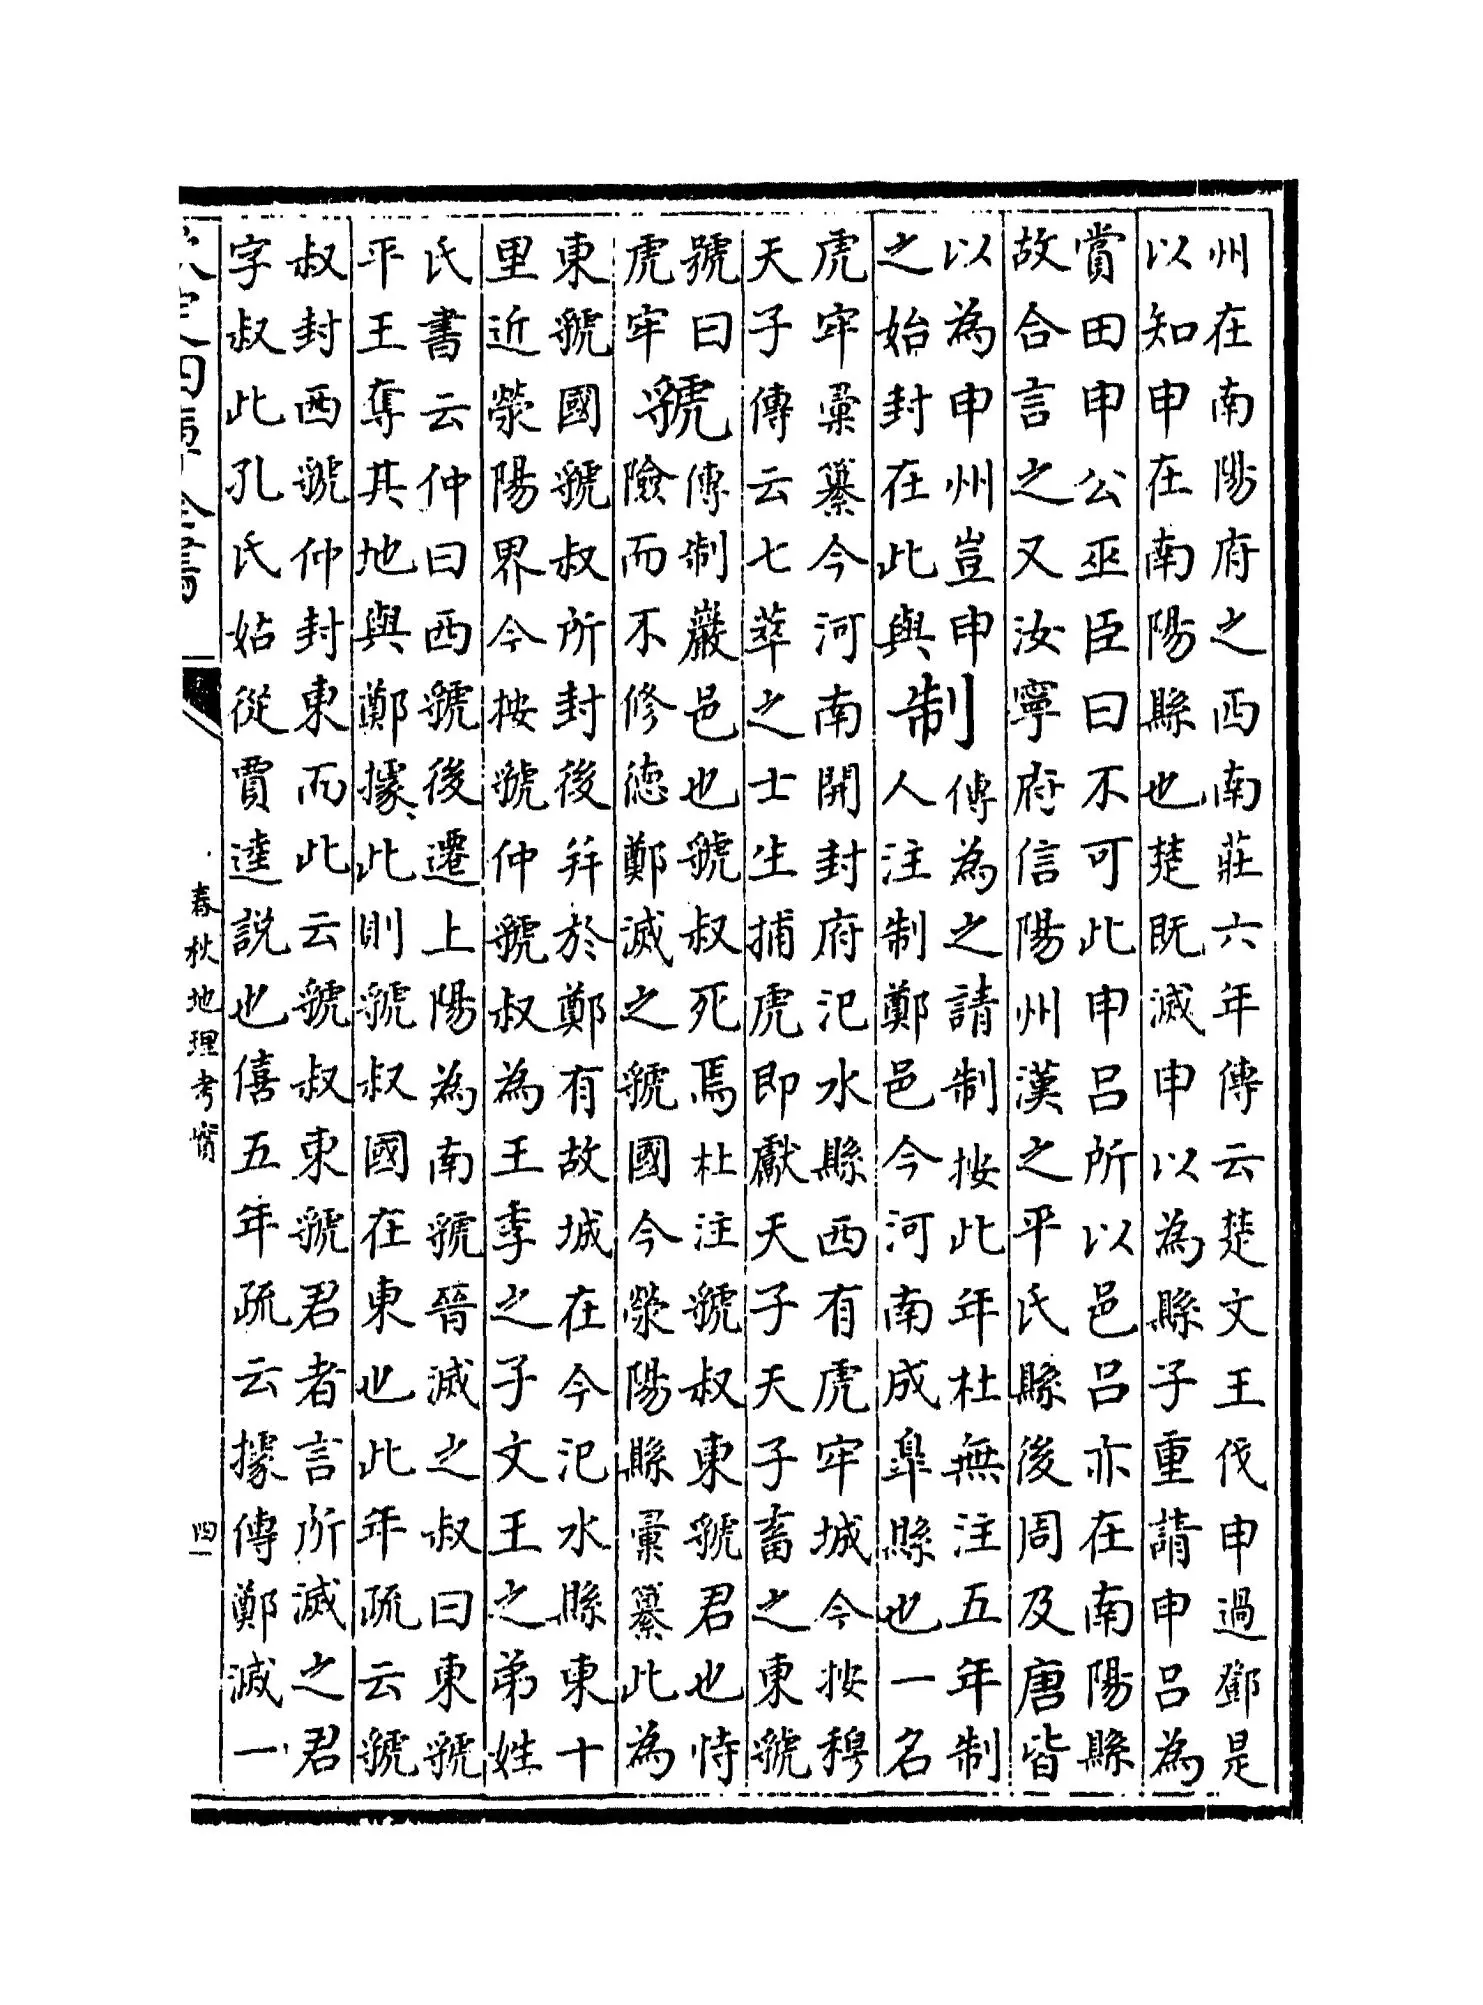 州在南陽府之西南莊六年傳云楚文王伐申過鄧是
以知申在南陽縣也楚既滅申以為縣子重請申呂為
賞田申公巫臣曰不可此申呂所以邑呂亦在南陽縣
故合言之又汝寧府信陽州漢之平氏縣後周及唐皆
以為申州豈申
之始封在此與
制
傳為之請制按此年杜無注五年制
人注制鄭邑今河南成臯縣也一名
虎牢彙纂今河南開封府汜水縣西有虎牢城今按穆
天子傳云七萃之士生捕虎即獻天子天子畜之東虢
號曰
虎牢
虢
傳制巖邑也虢叔死焉杜注虢叔東虢君也恃
險而不修徳鄭滅之虢國今滎陽縣彙纂此為
東虢國虢叔所封後并於鄭有故城在今汜水縣東十
里近滎陽界今按虢仲虢叔為王季之子文王之弟姓
氏書云仲曰西虢後遷上陽為南虢晉滅之叔曰東虢
平王奪其地與鄭據此則虢叔國在東也此年疏云虢
叔封西虢仲封東而此云虢叔東虢君者言所滅之君
字叔此孔氏姑從賈逵說也僖五年疏云據傳鄭滅一
欽定四庫全書
春秋地理考實
四